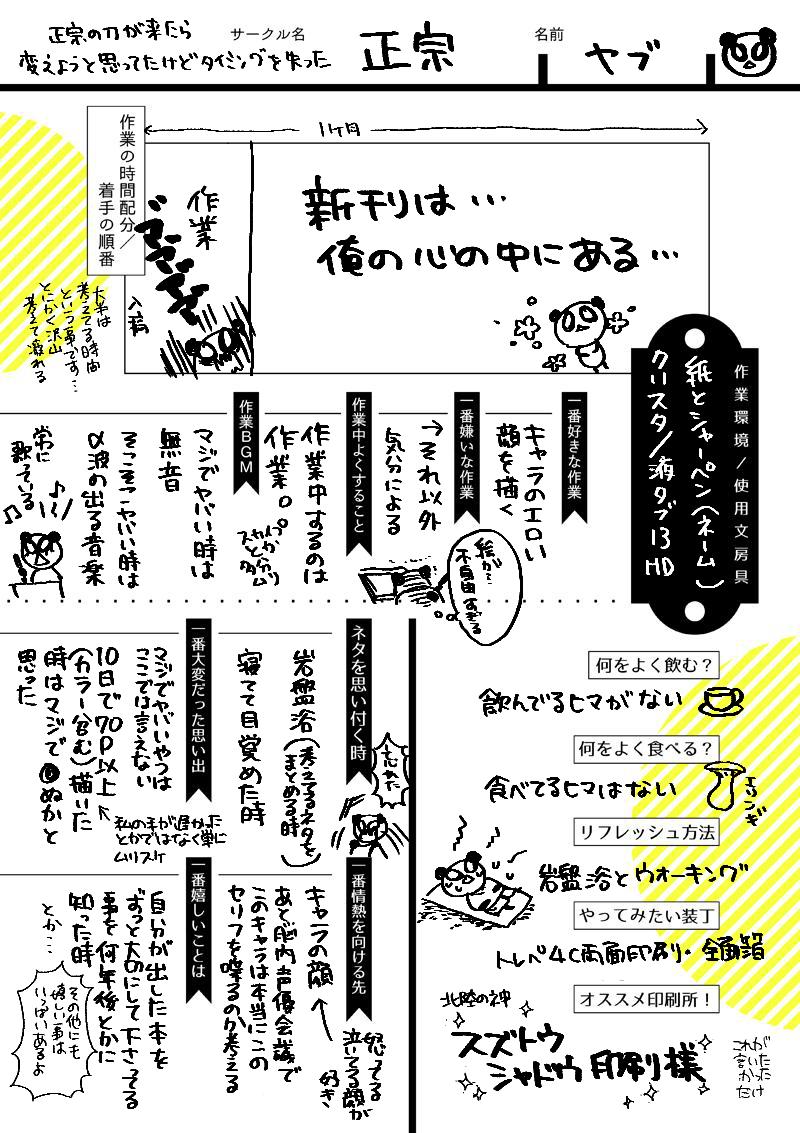 正宗の刀が来たら
変えようと思ってたけどタイミングを失った
サークル名
正宗
名前
ヤブ
作業の時間配分/
着手の順番
1ヶ月
作業
入稿
新刊は…
俺の心の中にある…
大半は
考えてる時間
という事です…
とにかく沢山
考えて溺れる
作業環境/使用文房具
紙とシャーペン(ネーム)
クリスタ/液タブ13HD
一番好きな作業
キャラのエロい
顔を描く
一番嫌いな作業
→それ以外
気分による
絵が…
不自由すぎる
作業中よくすること
作業中するのは
作業。
スカイプとか
作業BGM
マジでヤバい時は
無音
そこそこヤバい時は
α波の出る音楽
常に
歌っている
ネタを思い付く時
岩盤浴(考えてるネタをまとめる時)
寝てて目覚めた時
忘れた
一番大変だった思い出
マジでヤバいやつは
ここでは言えない
10日で70P以上
(カラー含む)描いた
時はマジで◎ぬかと
思った
私の手が遅かった
とかではなく単に
ムリスケ
一番情熱を向ける先
キャラの顔
怒ってる
泣いてる顔が
好き
あと脳内声優会議で
このキャラは本当にこの
セリフを喋るのか考える
一番嬉しいことは
自分が出した本を
ずっと大切にして下さってる
事を何年後とかに
知った時
とか…
その他にも
嬉しい事は
いっぱいあるよ
何をよく飲む?
飲んでるヒマがない
何をよく食べる?
食べてるヒマはない
エリンギ
リフレッシュ方法
岩盤浴とウォーキング
やってみたい装丁
トレペ4C両面印刷・全面箔
オススメ印刷所!
北陸の神
スズトウ
シャドウ印刷様
これが
言いたかった
だけ